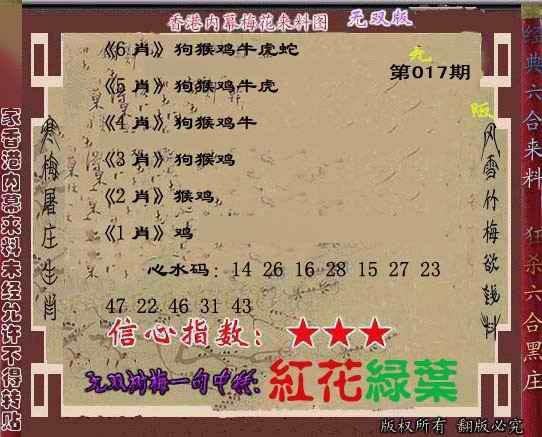 香港内幕梅花来料图 无双版
《6 肖》狗猴鸡牛虎蛇
第017期
《5 肖》狗猴鸡牛虎
《4 肖》狗猴鸡牛
《3 肖》狗猴鸡
《2 肖》猴鸡
《1 肖》鸡
心水码: 14 26 16 28 15 27 23
47 22 46 31 43
信心指数: ★★★
紅花綠葉
寒梅屠庄生肖
风雪竹梅欲
经典六合来料 狂杀六合黑庄
香港内幕来料未经允许不得转贴
版权所有 翻版必究